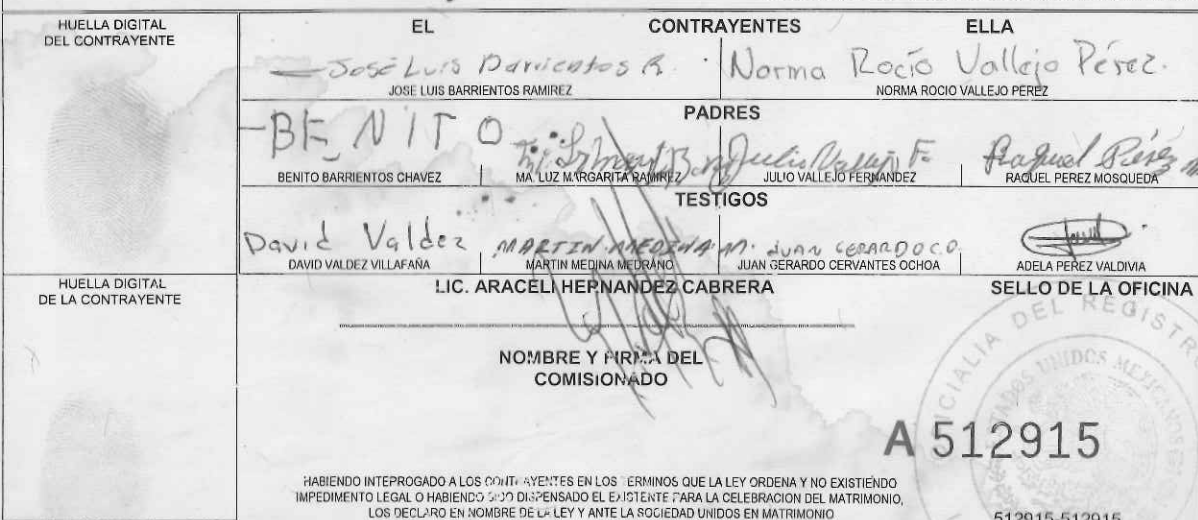 HUELLA DIGITAL
DEL CONTRAYENTE
EL CONTRAYENTES ELLA
José Luis Barrientos R. Norma Rocío Vallejo Pérez.
JOSE LUIS BARRIENTOS RAMIREZ NORMA ROCIO VALLEJO PEREZ
PADRES
BENITO Julio Vallejo F. Raquel Pérez M
BENITO BARRIENTOS CHAVEZ MA. LUZ MARGARITA RAMIREZ JULIO VALLEJO FERNANDEZ RAQUEL PEREZ MOSQUEDA
TESTIGOS
David Valdez MARTIN MEDINA M. JUAN GERARDO C.O.
DAVID VALDEZ VILLAFAÑA MARTIN MEDINA MEDRANO JUAN GERARDO CERVANTES OCHOA ADELA PEREZ VALDIVIA
HUELLA DIGITAL
DE LA CONTRAYENTE
LIC. ARACELI HERNANDEZ CABRERA
SELLO DE LA OFICINA
NOMBRE Y FIRMA DEL
COMISIONADO
OFICIALIA DEL REGISTR
ESTADOS UNIDOS MEXICANOS
A 512915
HABIENDO INTEPROGADO A LOS CONTRAYENTES EN LOS TERMINOS QUE LA LEY ORDENA Y NO EXISTIENDO
IMPEDIMENTO LEGAL O HABIENDO SIDO DISPENSADO EL EXISTENTE PARA LA CELEBRACION DEL MATRIMONIO,
LOS DECLARO EN NOMBRE DE LA LEY Y ANTE LA SOCIEDAD UNIDOS EN MATRIMONIO
512915-512915